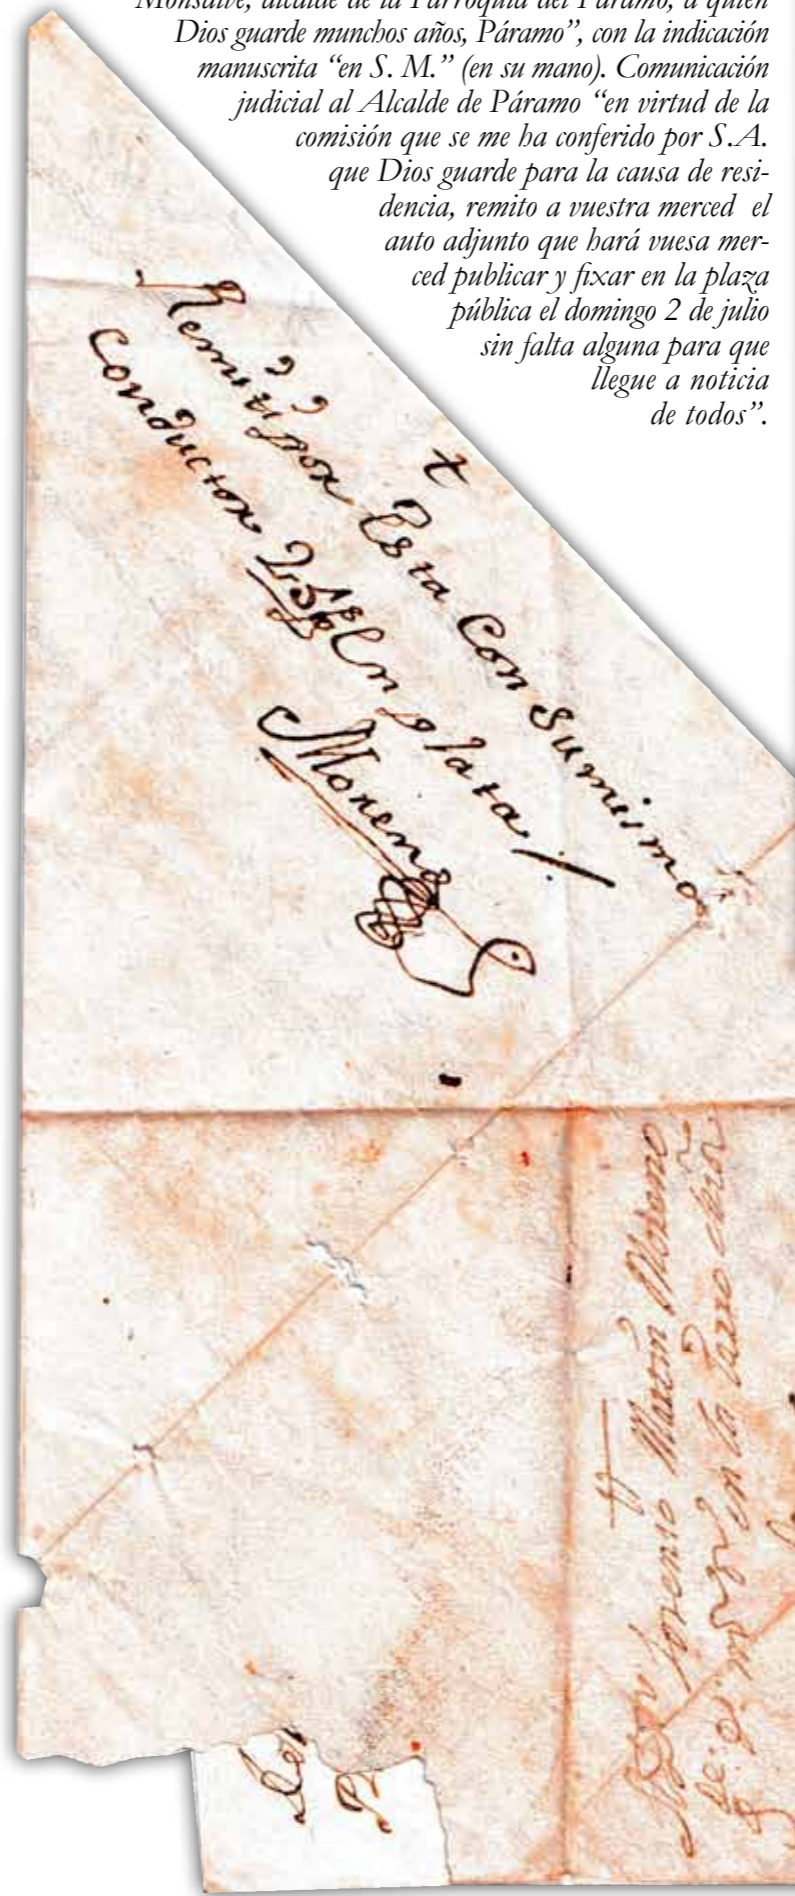 Monsalve, alcalde de la Parroquia del Páramo, a quien
Dios guarde munchos años, Páramo”, con la indicación
manuscrita “en S. M.” (en su mano). Comunicación
judicial al Alcalde de Páramo “en virtud de la
comisión que se me ha conferido por S.A.
que Dios guarde para la causa de resi-
dencia, remito a vuestra merced el
auto adjunto que hará vuesa mer-
ced publicar y fixar en la plaza
pública el domingo 2 de julio
sin falta alguna para que
llegue a noticia
de todos”.
Remiti por Esta Con Sumismo
Conductor En plata
Moreno
Lorenso Martin Moreno
en la